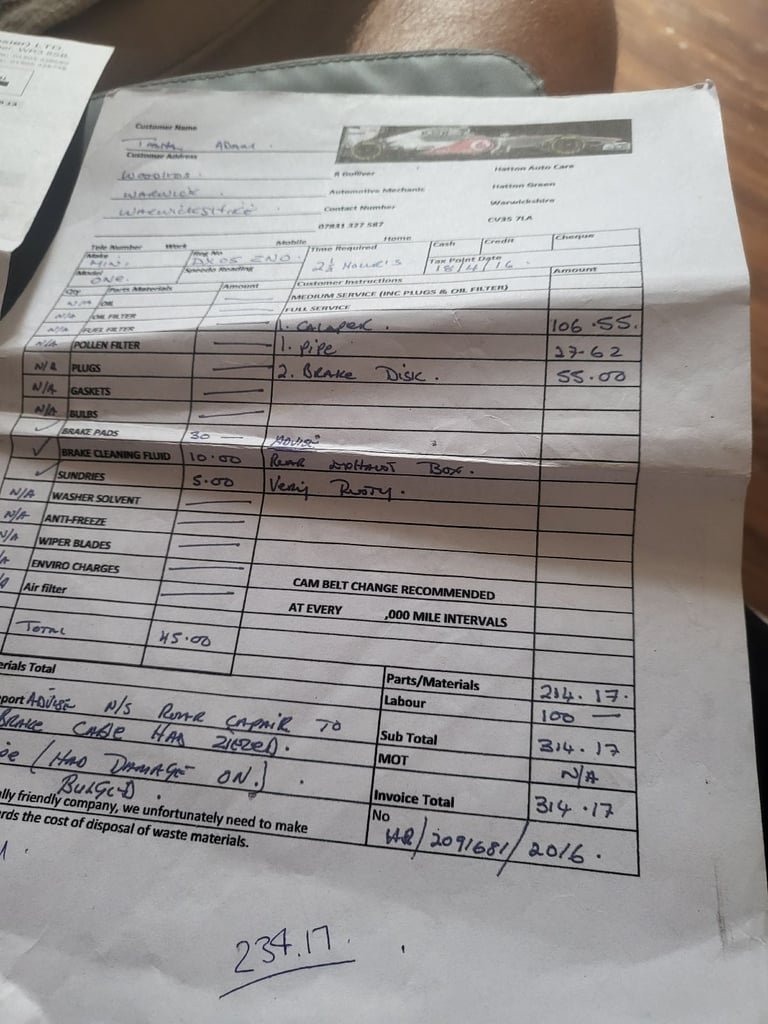 Customer Name
ADAM.
Customer Address
WOODLOES.
WARWICK.
WARWICKSHIRE
R Gulliver
Automotive Mechanic
Contact Number
07831 327 587
Hatton Auto Care
Hatton Green
Warwickshire
CV35 7LA
Tele Number Work Mobile Home
Make
MINI.
Reg No
DX05 ZNO.
Time Required
2½ HOURS
Cash Credit Cheque
Tax Point Date
18/4/16.
Model
ONE.
Speedo Reading
Customer Instructions Amount
Qty Parts Materials Amount
MEDIUM SERVICE (INC PLUGS & OIL FILTER)
N/A OIL
FULL SERVICE
N/A OIL FILTER
1. CALAPER. 106.55.
N/A FUEL FILTER
1. PIPE 27-62
N/A POLLEN FILTER
2. BRAKE DISK. 55.00
N/A PLUGS
N/A GASKETS
N/A BULBS
BRAKE PADS 30 — ADVISE
✓ BRAKE CLEANING FLUID 10.00 REAR EXHAUST BOX.
✓ SUNDRIES 5.00 VERY RUSTY.
N/A WASHER SOLVENT
N/A ANTI-FREEZE
N/A WIPER BLADES
ENVIRO CHARGES
Air filter
CAM BELT CHANGE RECOMMENDED
AT EVERY ,000 MILE INTERVALS
TOTAL 45.00
erials Total
Parts/Materials 214.17.
Labour 100 —
Sub Total 314.17
MOT N/A
Invoice Total 314.17
No HR/2091681/2016.
port ADVISE N/S REAR CAPAIR TO
BRAKE CABLE HAD ZIEZED.
(HAD DAMAGE ON.)
BULGED.
ally friendly company, we unfortunately need to make
rds the cost of disposal of waste materials.
234.17.